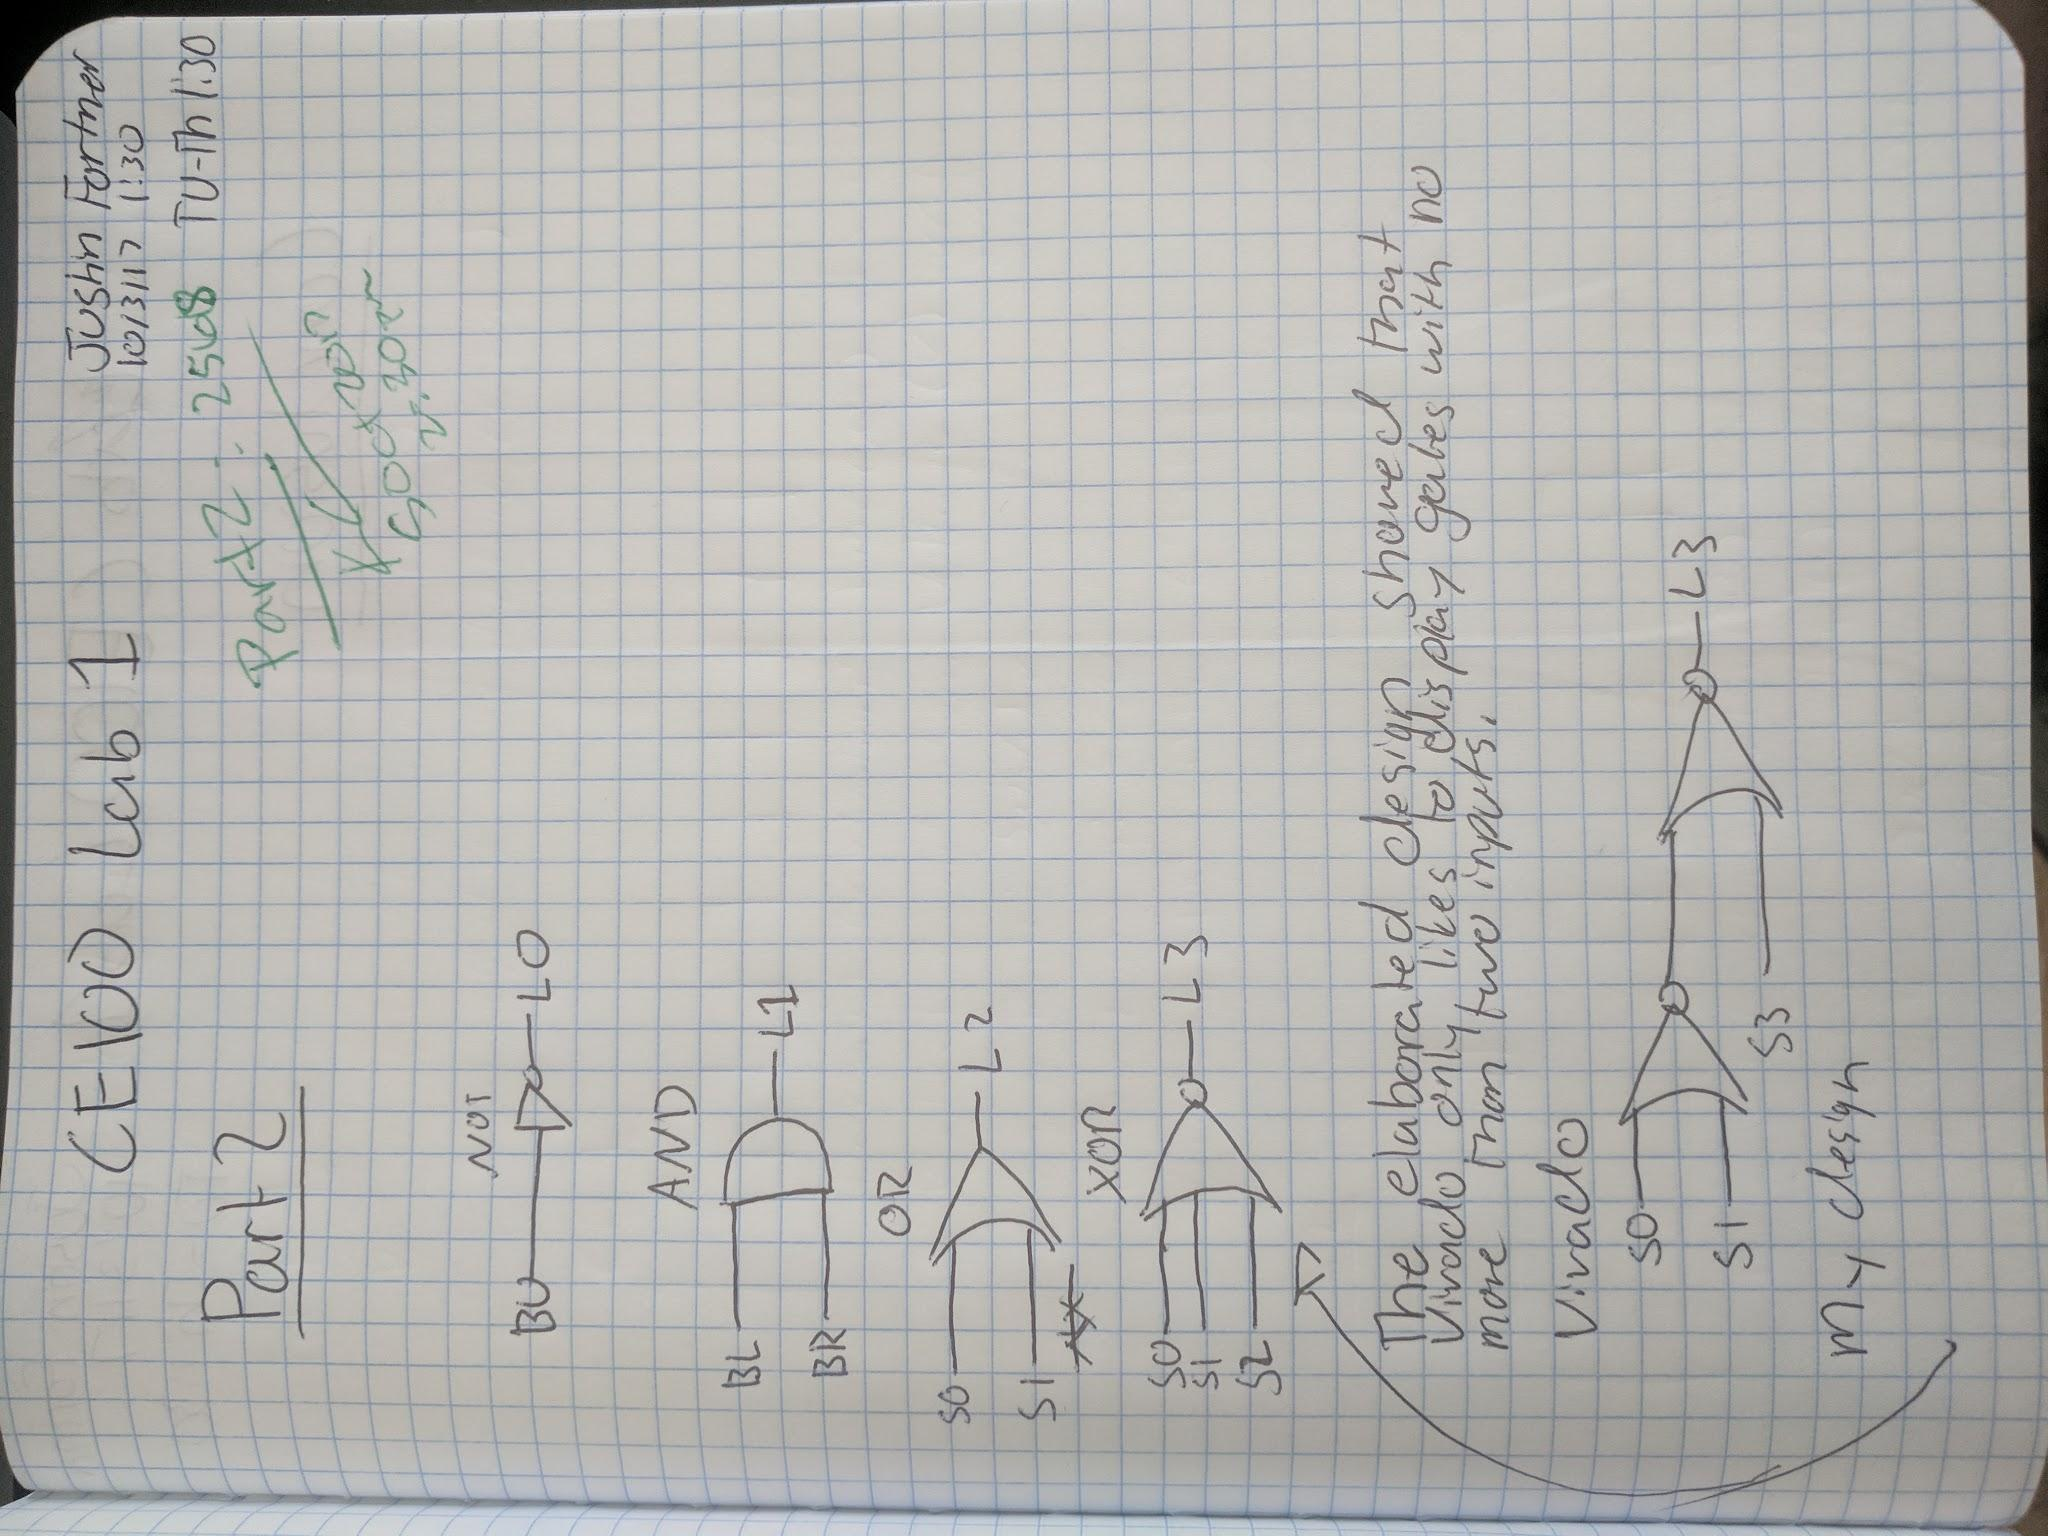 CE100 Lab 1
Justin Fortner
10/3/17 1:30
TU-Th 1:30
Part 2
Part 2:
NOT
BU
L0
AND
BL
BR
L1
OR
S0
S1
L2
XOR
S0
S1
S2
L3
The elaborated design showed that
Vivado only likes to display gates with no
more than two inputs.
Vivado
S0
S1
S3
L3
My design